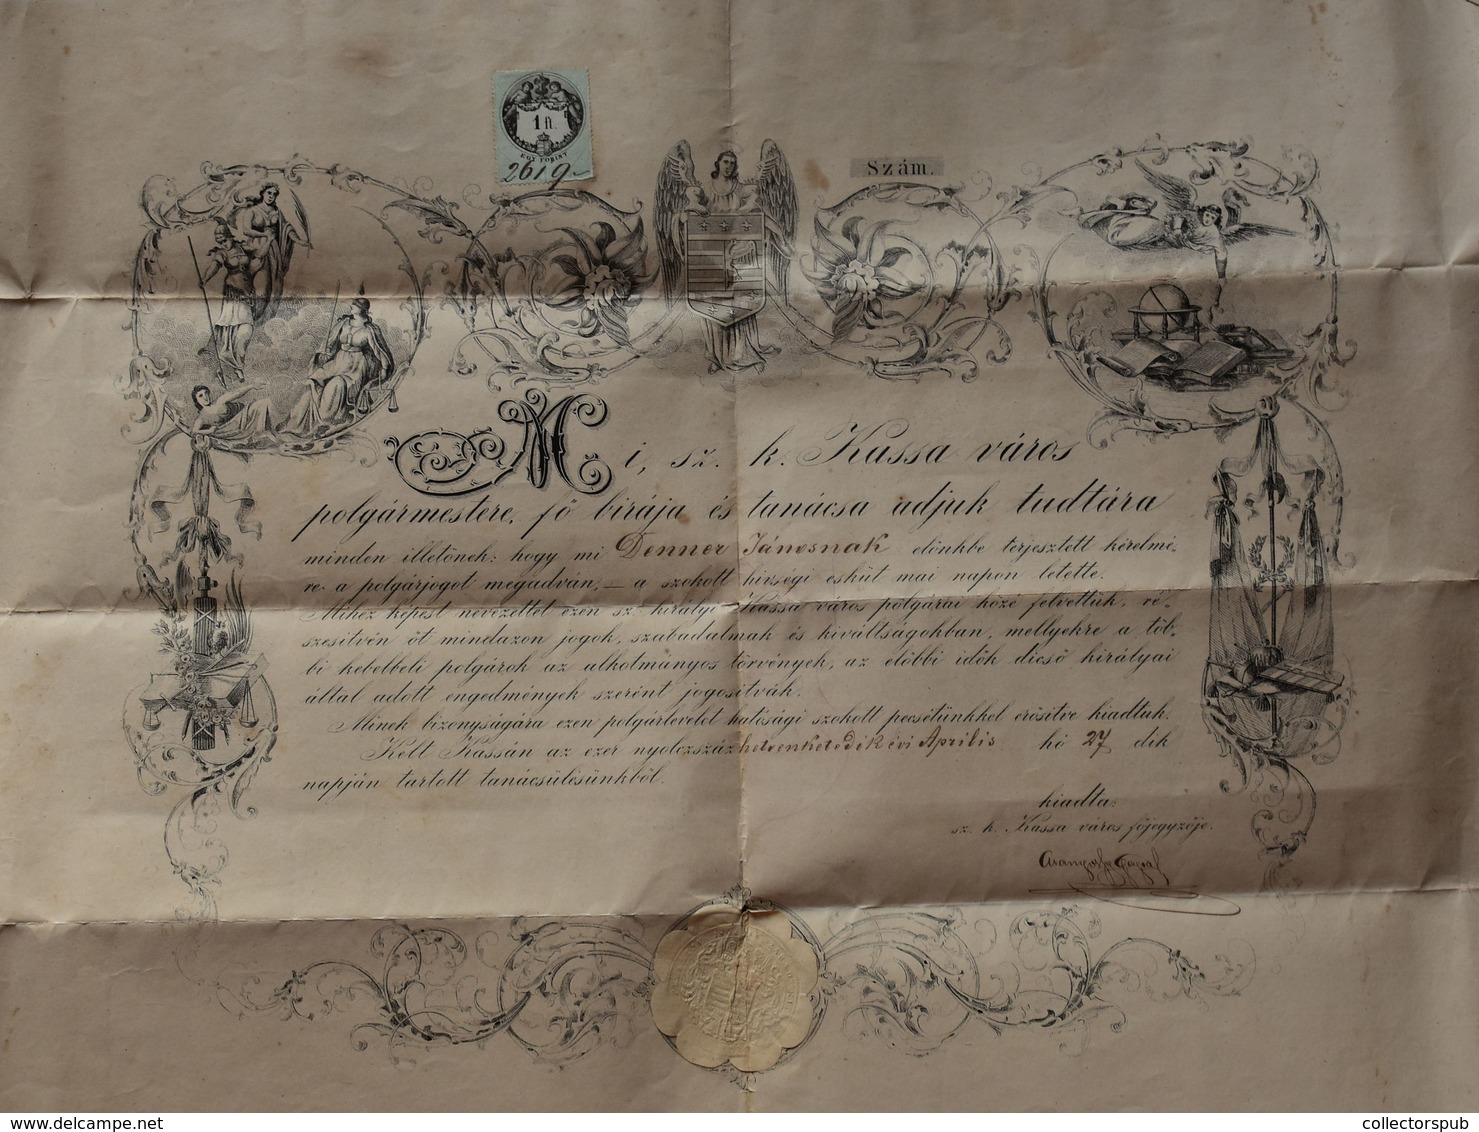 1 ft.
EGY FORINT
2619
Szám.
Mi, sz. k. Kassa város
polgármestere, fő birája és tanácsa adjuk tudtára
minden illetőnek: hogy mi Denner Jánosnak előnkbe terjesztett kérelmi-
re a polgárjogot megadván, – a szokott hivségi esküt mai napon letette.
Mihez képest nevezettet ezen sz. királyi Kassa város polgárai közé felvettük, ré-
szesitvén őt mindazon jogok, szabadalmak és kiváltságokban, mellyekre a töb-
bi kebelbeli polgárok az alkotmányos törvények, az előbbi idők dicső királyai
által adott engedmények szerént jogositvák.
Minek bizonyságára ezen polgárlevelet hatósági szokott pecsétünkkel erősitve kiadtuk.
Kelt Kassán az ezer nyolczszáz hetvenketedik évi Április hó 27 dik
napján tartott tanácsülésünkből.
kiadta:
sz. k. Kassa város főjegyzője.
collectorspub